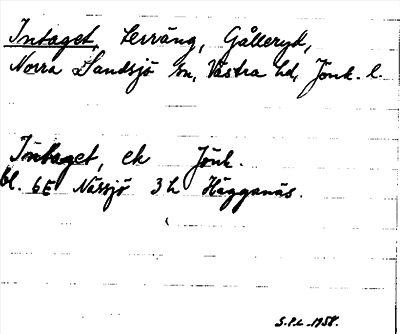 Intaget, terräng, Gålleryd,
Norra Sandsjö sn, Västra hd, Jönk. l.
Intaget, ek Jönk.
bl. 6E Nässjö 3h Hägganäs.
S.P.L. 1958.